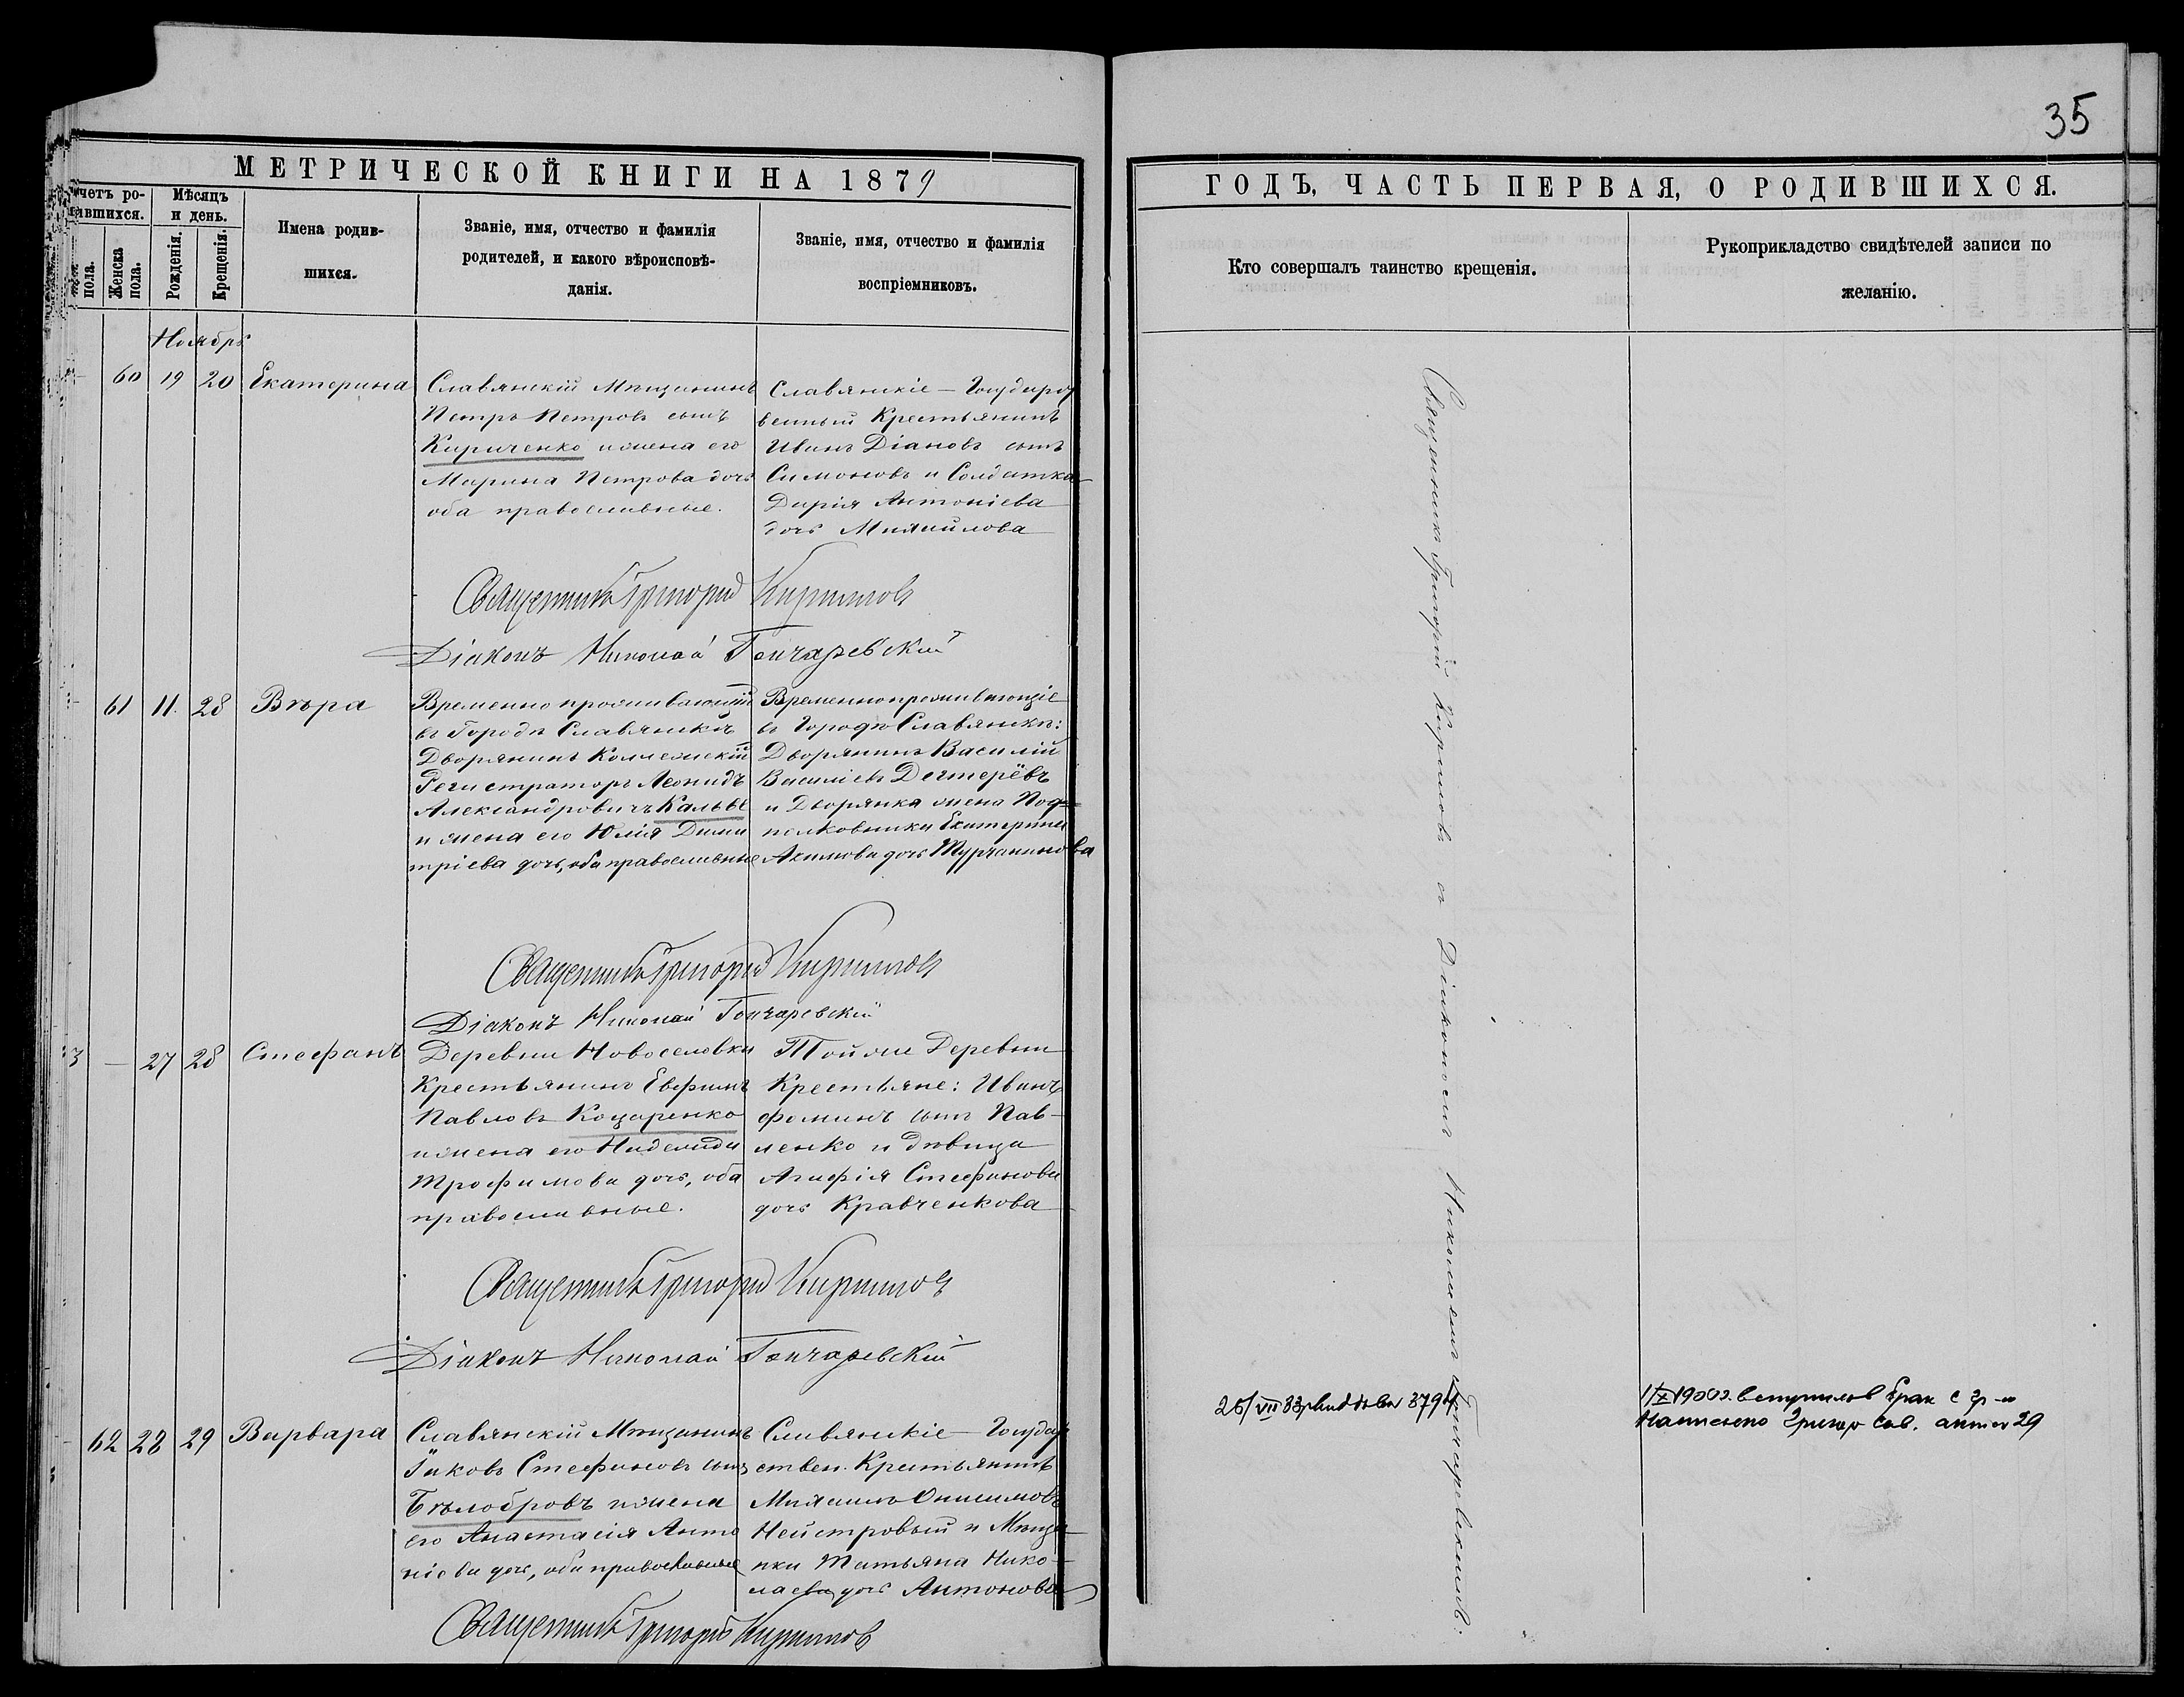 35
МЕТРИЧЕСКОЙ КНИГИ НА 1879
ГОДЪ, ЧАСТЬ ПЕРВАЯ, О РОДИВШИХСЯ.
четъ ро-
вшихся.
пола.
Женска
пола.
Мѣсяцъ
и день.
Рожденія.
Крещенія.
Имена родив-
шихся.
Званіе, имя, отчество и фамилія
родителей, и какого вѣроисповѣ-
данія.
Званіе, имя, отчество и фамилія
воспріемниковъ.
Кто совершалъ таинство крещенія.
Рукоприкладство свидѣтелей записи по
желанію.
Ноябрь
60 19 20 Екатерина
Славянскій Мѣщанинъ
Петръ Петровъ сынъ
Кириченко и жена его
Марина Петрова дочь
оба православные.
Славянскіе – Государст
венный Крестьянинъ
Иванъ Діановъ сынъ
Симоновъ и Солдатка
Дарія Антоніева
дочь Михайлова
Священникъ Григорій Кириловъ
Діаконъ Николай Гончаревскій
61 11. 28 Вѣра
Временно проживающій
въ Городѣ Славянскѣ
Дворянинъ Коллежскій
Регистраторъ Леонидъ
Александровичъ Кальве
и жена его Юлія Дими
тріева дочь, оба православные
Временнопроживающіе
въ Городѣ Славянскѣ:
Дворянинъ Василій
Василіевъ Дегтерёвъ
и Дворянка жена Под-
полковника Екатерина
Акимова дочь Турчанинова
Священникъ Григорій Кириловъ
Діаконъ Николай Гончаревскій
3 – 27 28 Стефанъ
Деревни Новоселовки
Крестьянинъ Евфимъ
Павловъ Коцаренко
и жена его Надежда
Трофимова дочь, оба
православные.
Той же Деревни
Крестьяне: Иванъ
Фоминъ сынъ Пав-
ленко и дѣвица
Агафія Стефанова
дочь Кравченкова
Священникъ Григорій Кириловъ
Діаконъ Николай Гончаревскій
– 62 28 29 Варвара
Славянскій Мѣщанинъ
Іаковъ Стефановъ сынъ
Бѣлобровъ и жена
его Анастасія Анто
ніева дочь, оба православные
Славянскіе – Государ
ствен. Крестьянинъ
Михаилъ Онисимовъ
Нейстровый и Мѣща-
нка Татьяна Нико-
лаева дочь Антонова
Священникъ Григорій Кириловъ
Священникъ Григорій Кириловъ съ Діакономъ Николаемъ Гончаревскимъ.
26/VII 83 3794
1/X 1900г. вступилов брак с гр-м
Григор Сав. акт № 29